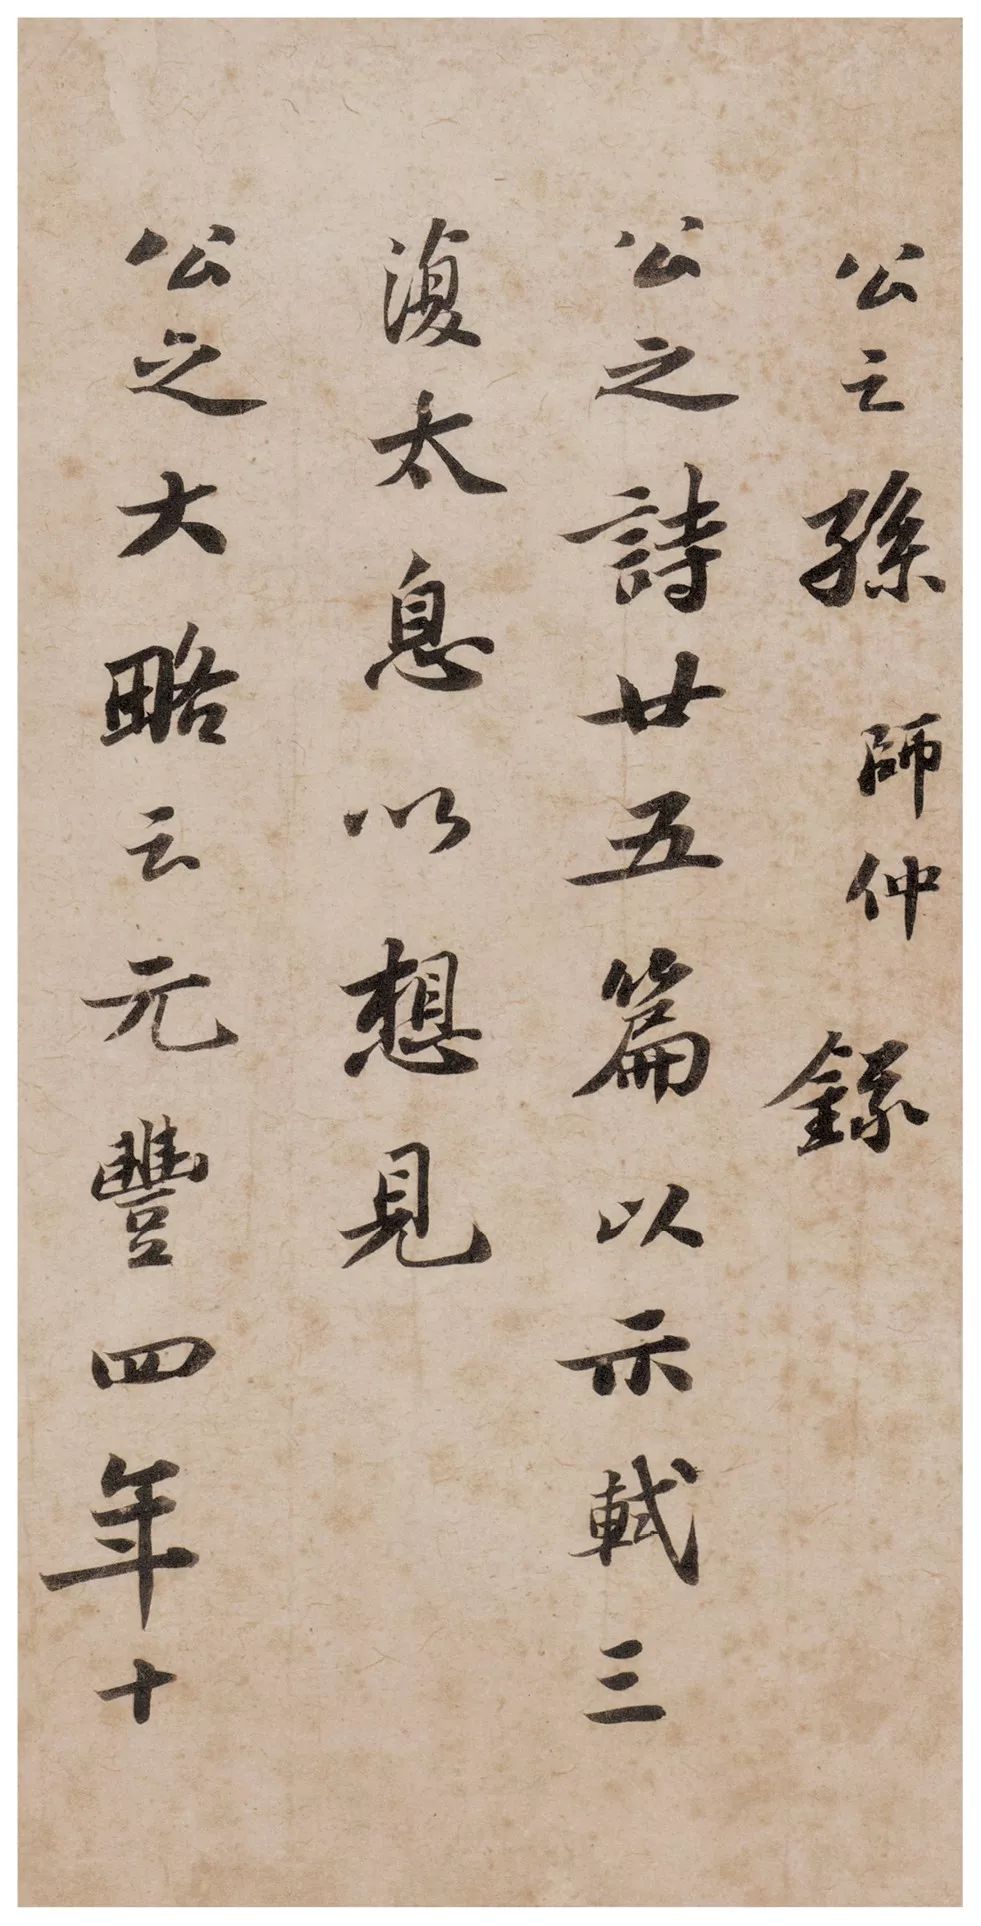 公之孫師仲錄
公之詩廿五篇以示軾三
復太息以想見
公之大略云元豐四年十